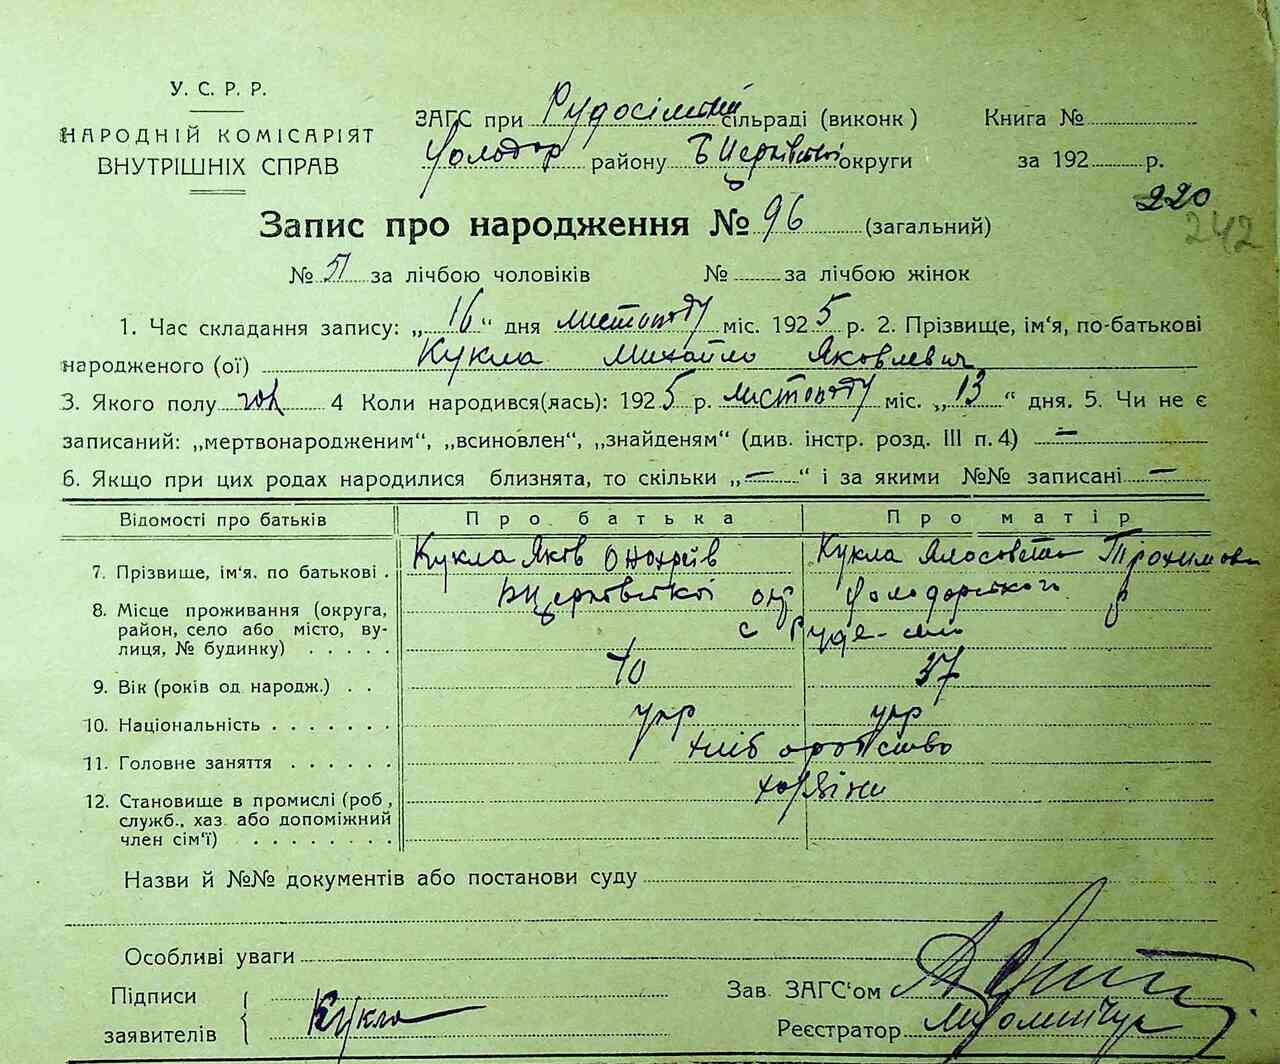 У. С. Р. Р.
НАРОДНІЙ КОМІСАРІЯТ
ВНУТРІШНІХ СПРАВ
ЗАГС при Рудосільській сільраді (виконк)
Володар району БЦерківської округи
Книга №
за 192 р.
220
242
Запис про народження № 96 (загальний)
№ 51 за лічбою чоловіків № за лічбою жінок
1. Час складання запису: „16“ дня листопаду міс. 1925 р. 2. Прізвище, ім‘я, по-батькові
народженого (ої) Кукла Михайло Яковлевич
3. Якого полу чол 4 Коли народився(лась): 1925 р. листопаду міс. „13“ дня. 5. Чи не є
записаний: „мертвонародженим“, „всиновлен“, „знайденям“ (див. інстр. розд. III п. 4) —
6. Якщо при цих родах народилися близнята, то скільки „—“ і за якими №№ записані —
Відомості про батьків Про батька Про матір
7. Прізвище, ім‘я, по батькові . Кукла Яків Кукла Трохимовн
8. Місце проживання (округа, БЦерковської окр Володарського р
район, село або місто, ву- с Руде-село
лиця, № будинку) . . . . .
9. Вік (років од народж.) . . 40 37
10. Національність . . . . . . . укр укр
11. Головне заняття . . . . . . хліборобство
12. Становище в промислі (роб , хазяїни
служб., хаз. або допоміжний
член сім‘ї) . . . . . . . .
Назви й №№ документів або постанови суду
Особливі уваги
Підписи
заявителів Кукла
Зав. ЗАГС‘ом
Реєстратор